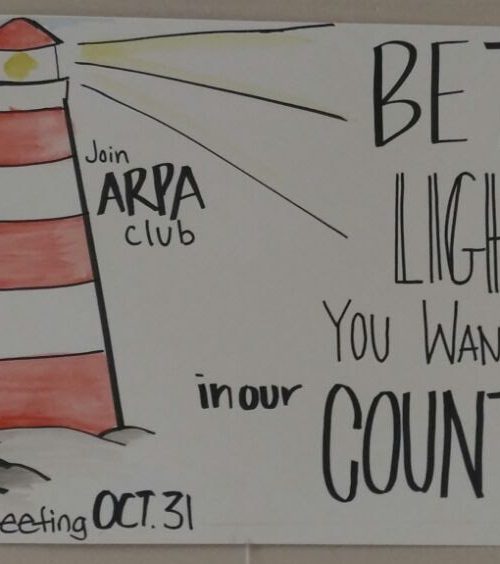 Join
ARPA
club
BE T
LIGH
YOU WAN
in our COUNT
eeting OCT. 31